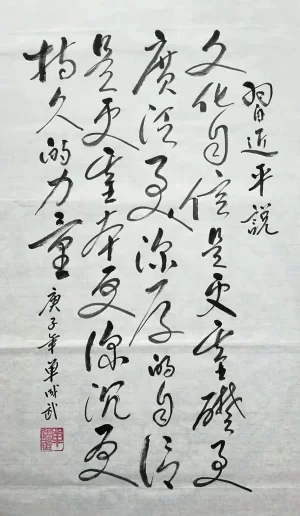 習近平説
文化自信是更基礎更
廣泛更深厚的自信
是更基本更深沉更
持久的力量
庚子年成武